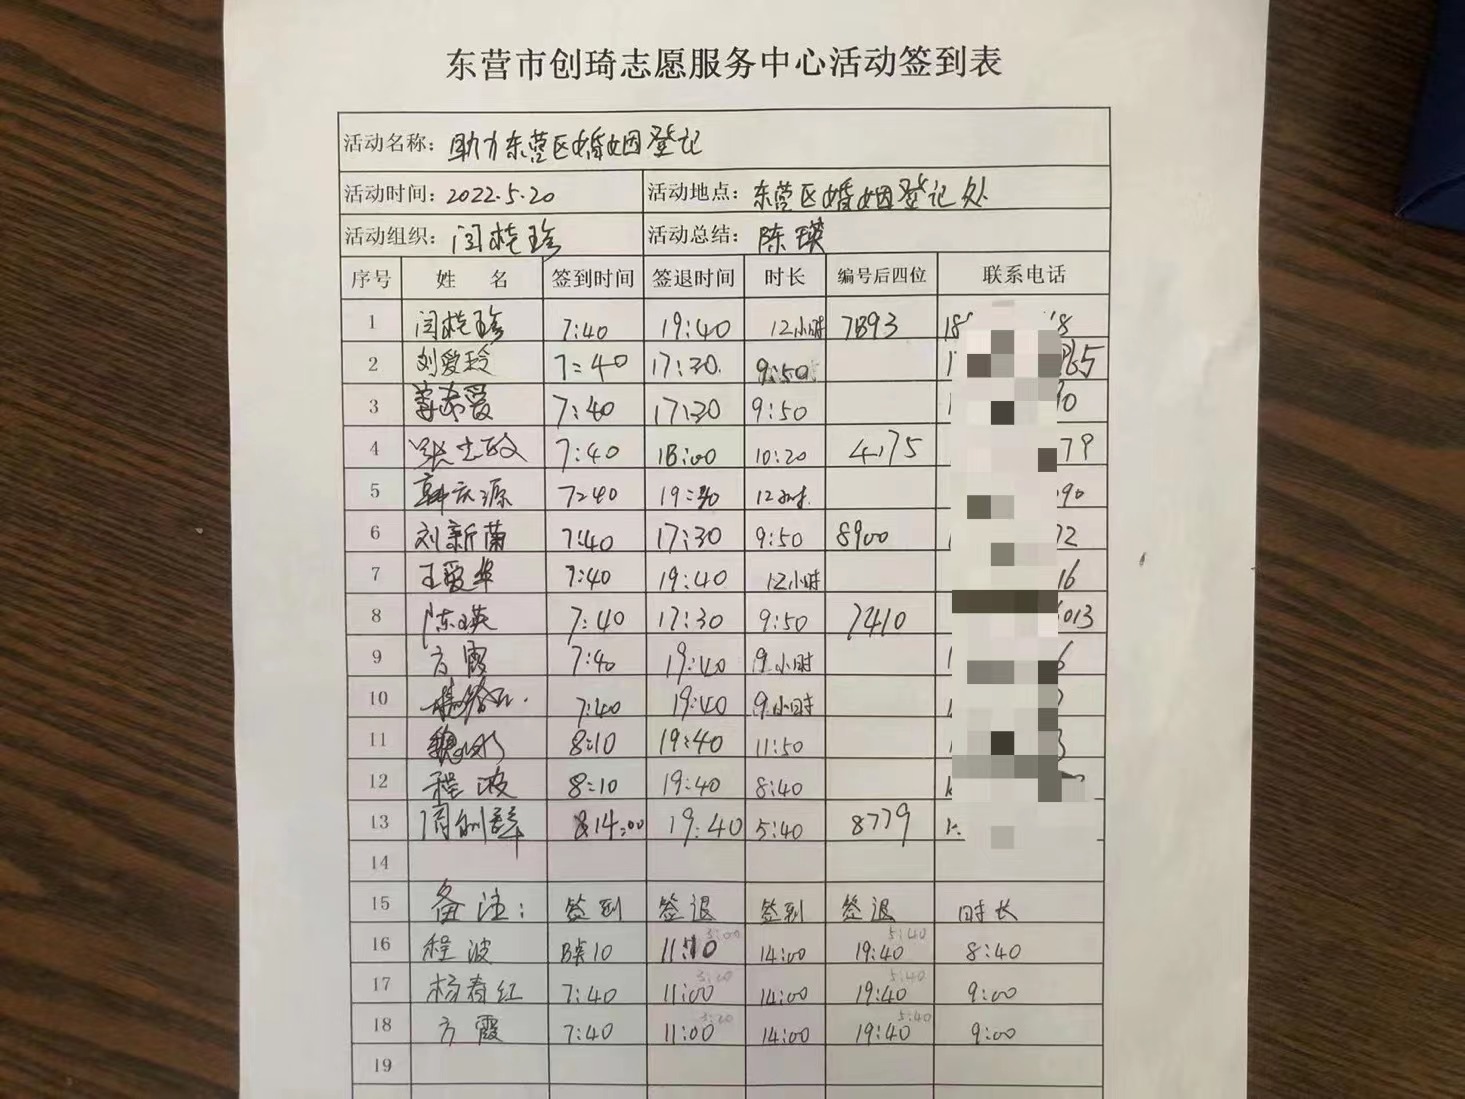 东营市创琦志愿服务中心活动签到表
活动名称：助力东营区婚姻登记
活动时间：2022.5.20 活动地点：东营区婚姻登记处
活动组织：闫桂珍 活动总结：陈瑛
序号 姓名 签到时间 签退时间 时长 编号后四位 联系电话
1 闫桂珍 7:40 19:40 12小时 7893
2 刘爱玲 7:40 17:30 9:50
3 7:40 17:30 9:50
4 张士政 7:40 18:00 10:20 4175
5 韩庆源 7:40 12小时
6 刘新菊 7:40 17:30 9:50 8900
7 王爱华 7:40 19:40 12小时
8 陈瑛 7:40 17:30 9:50 7410
9 方霞 7:40 19:40 9小时
10 7:40 19:40 9小时
11 8:10 19:40 11:50
12 程波 8:10 19:40 8:40
13 14:00 19:40 5:40 8779
14
15 备注： 签到 签退 签到 签退 时长
16 程波 8:10 11:10 3:00 14:00 19:40 5:40 8:40
17 杨春红 7:40 11:00 3:20 14:00 19:40 5:40 9:00
18 方霞 7:40 11:00 3:20 14:00 19:40 5:40 9:00
19